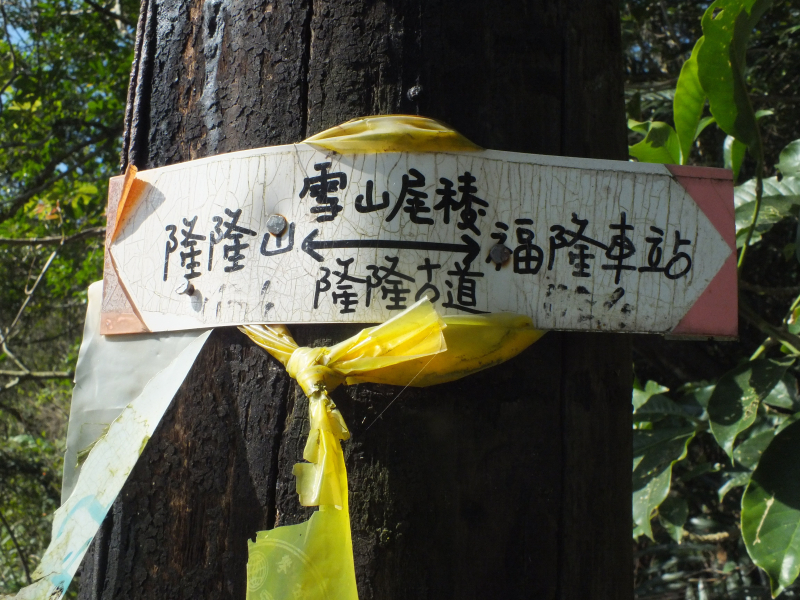 雪山尾稜
隆隆山 ⟷ 福隆車站
隆隆古道